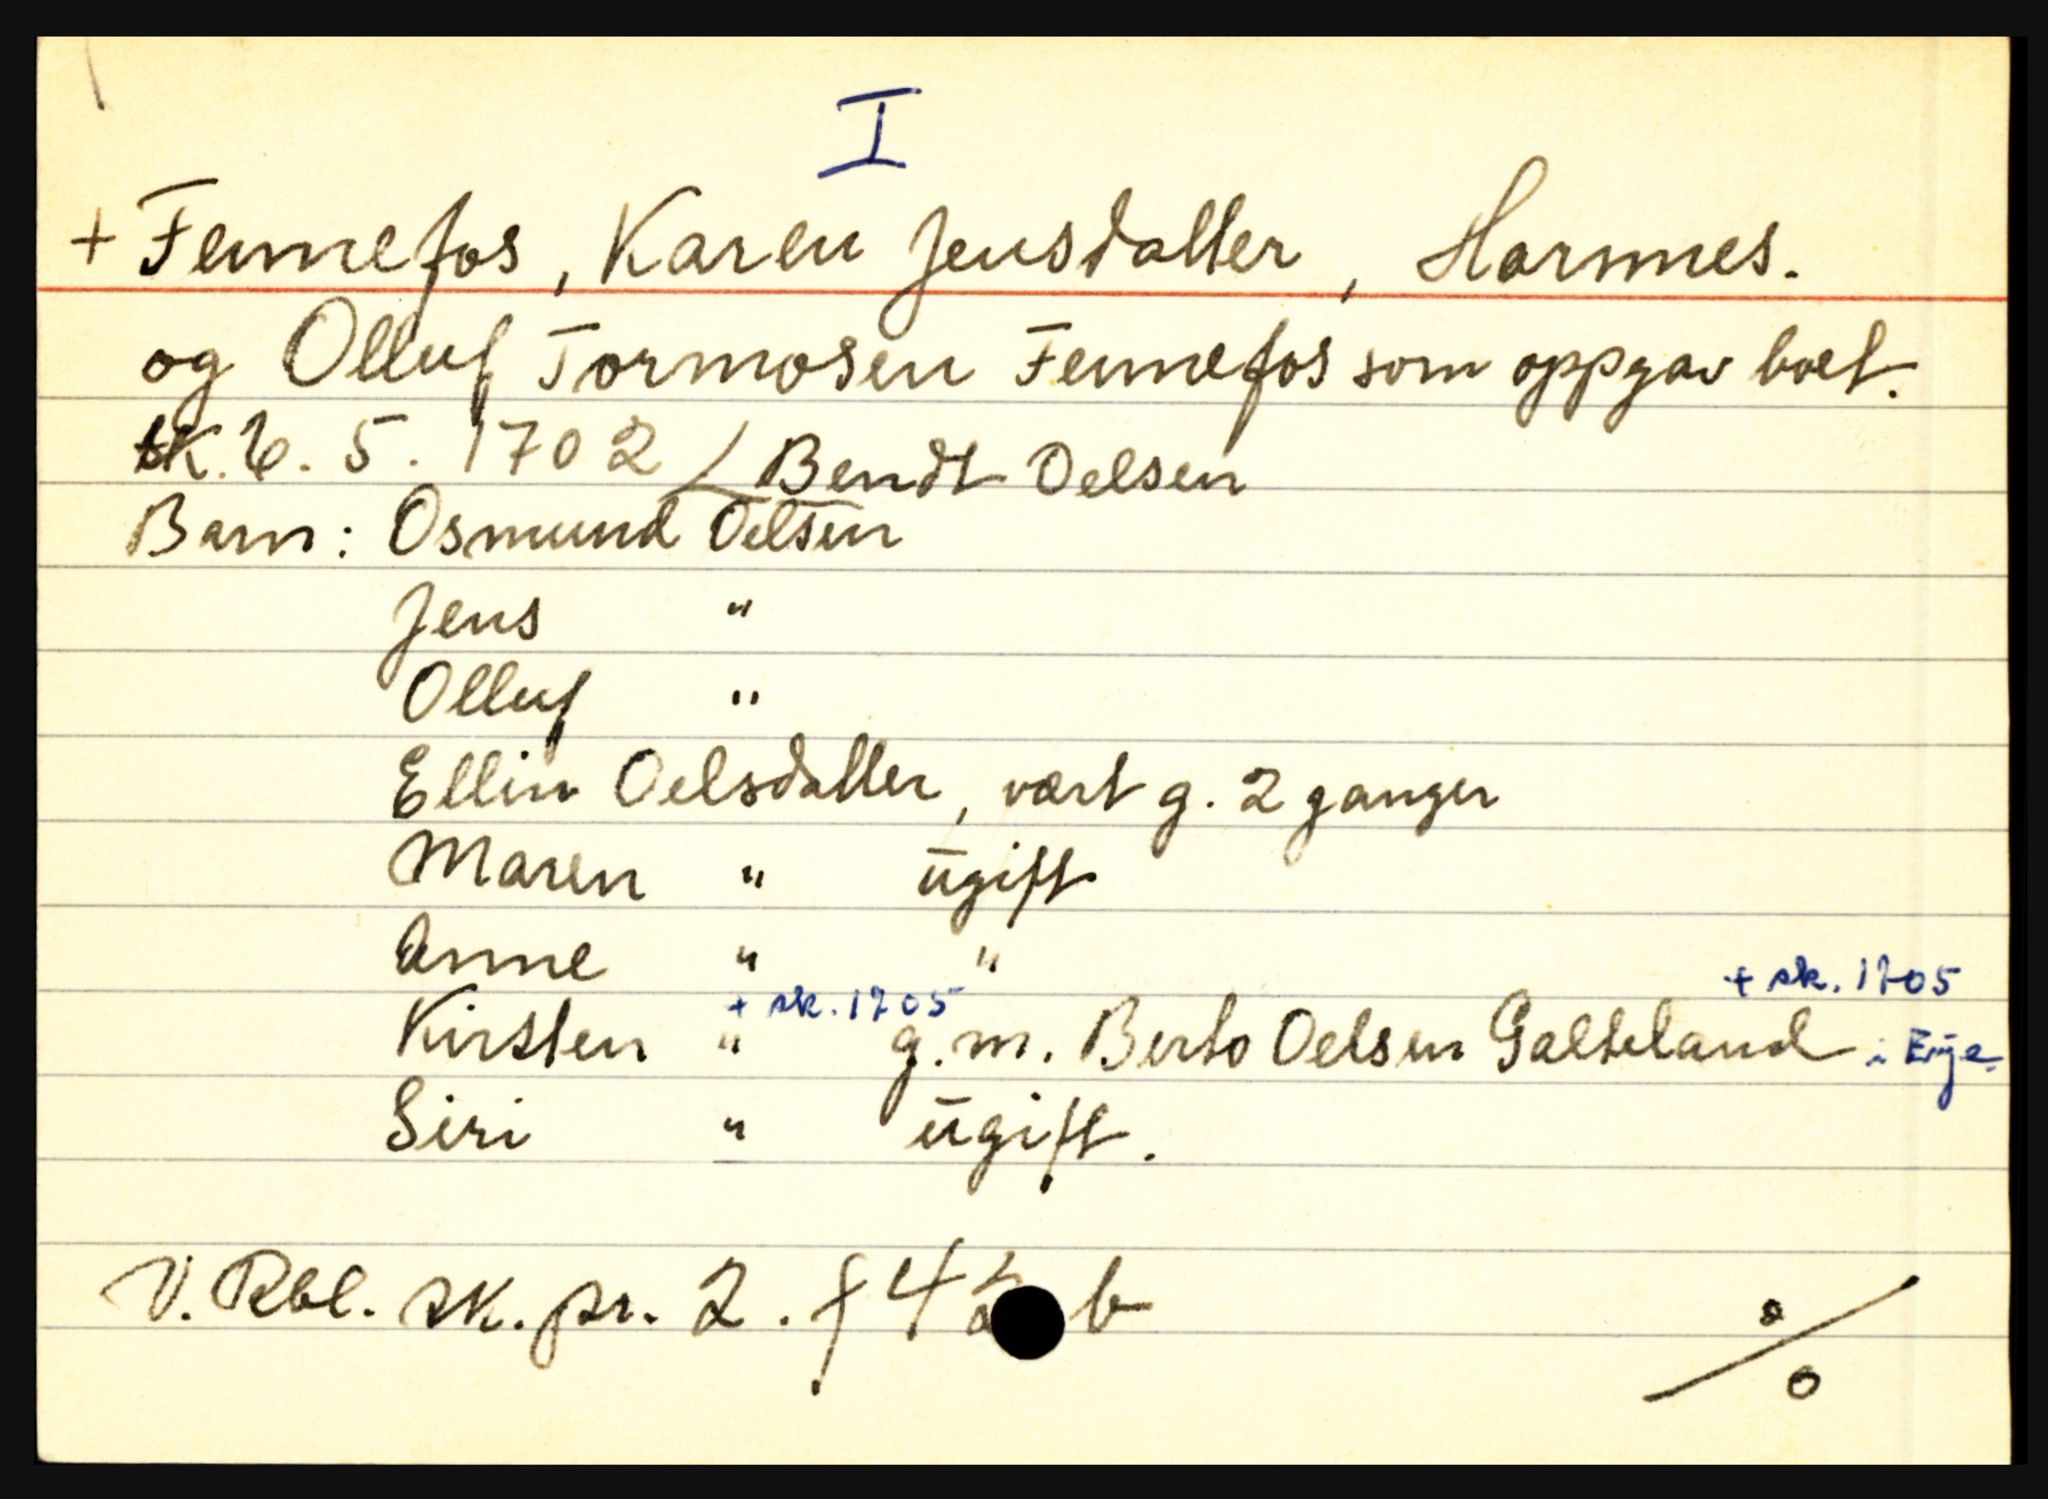 I
+ Fennefos, Karen Jensdatter, Hornnes.
og Olluf Tormosen Fennefos som oppgav boet.
sk. 6. 5. 1702 / Bendt Oelsen
Barn: Osmund Oelsen
Jens "
Olluf "
Ellin Oelsdatter, vært g. 2 ganger
Maren " ugift
Anne " "
+ sk. 1705 + sk. 1705
Kirsten " g.m. Berto Oelsen Galteland i Evje.
Siri " ugift.
V. Rbl. sk. pr. 2. f 4 b
%